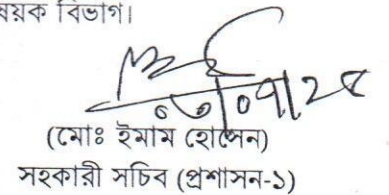 ষয়ক বিভাগ।
(মোঃ ইমাম হোসেন)
সহকারী সচিব (প্রশাসন-১)